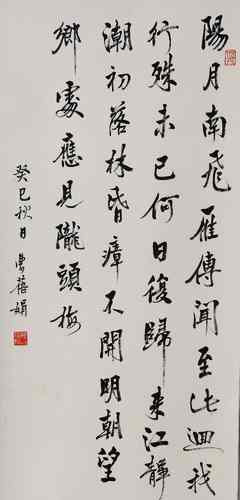 陽月南飛雁傳聞至此迴我
行殊未已何日復歸來江靜
潮初落林昏瘴不開明朝望
鄉處應見隴頭梅
癸巳秋日 曹蓓娟